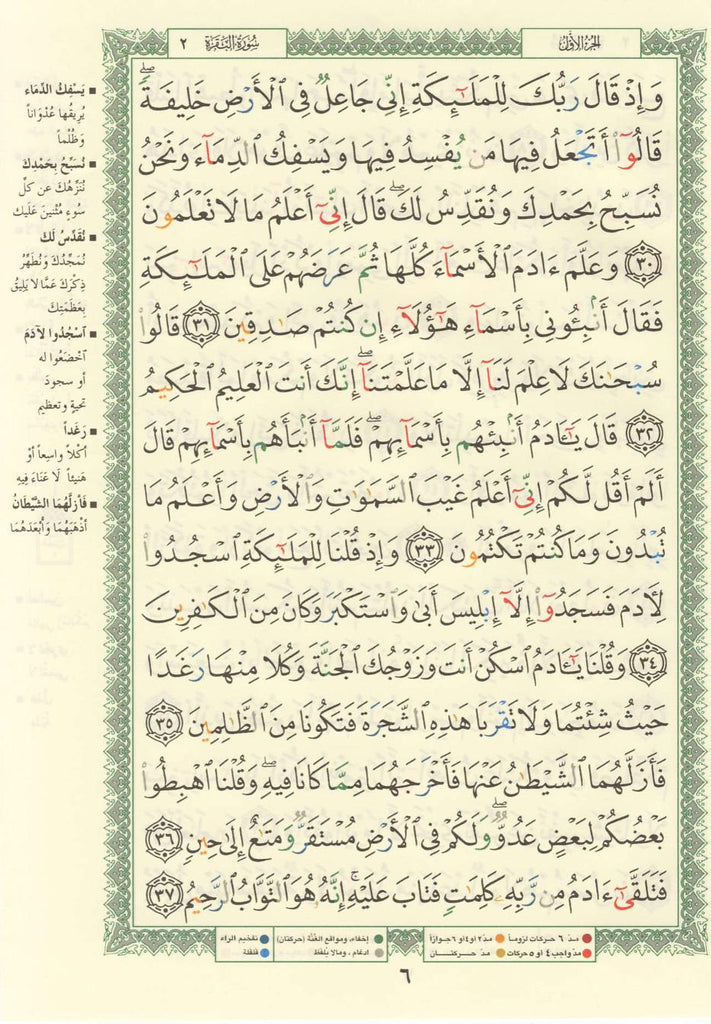 الجزء الأول
سورة البقرة ٢
وَإِذْ قَالَ رَبُّكَ لِلْمَلَٰٓئِكَةِ إِنِّى جَاعِلٌ فِى ٱلْأَرْضِ خَلِيفَةً ۖ
قَالُوٓا۟ أَتَجْعَلُ فِيهَا مَن يُفْسِدُ فِيهَا وَيَسْفِكُ ٱلدِّمَآءَ وَنَحْنُ
نُسَبِّحُ بِحَمْدِكَ وَنُقَدِّسُ لَكَ ۖ قَالَ إِنِّىٓ أَعْلَمُ مَا لَا تَعْلَمُونَ
٣٠ وَعَلَّمَ ءَادَمَ ٱلْأَسْمَآءَ كُلَّهَا ثُمَّ عَرَضَهُمْ عَلَى ٱلْمَلَٰٓئِكَةِ
فَقَالَ أَنۢبِـُٔونِى بِأَسْمَآءِ هَٰٓؤُلَآءِ إِن كُنتُمْ صَٰدِقِينَ ٣١ قَالُوا۟
سُبْحَٰنَكَ لَا عِلْمَ لَنَآ إِلَّا مَا عَلَّمْتَنَآ ۖ إِنَّكَ أَنتَ ٱلْعَلِيمُ ٱلْحَكِيمُ
٣٢ قَالَ يَٰٓـَٔادَمُ أَنۢبِئْهُم بِأَسْمَآئِهِمْ ۖ فَلَمَّآ أَنۢبَأَهُم بِأَسْمَآئِهِمْ قَالَ
أَلَمْ أَقُل لَّكُمْ إِنِّىٓ أَعْلَمُ غَيْبَ ٱلسَّمَٰوَٰتِ وَٱلْأَرْضِ وَأَعْلَمُ مَا
تُبْدُونَ وَمَا كُنتُمْ تَكْتُمُونَ ٣٣ وَإِذْ قُلْنَا لِلْمَلَٰٓئِكَةِ ٱسْجُدُوا۟
لِءَادَمَ فَسَجَدُوٓا۟ إِلَّآ إِبْلِيسَ أَبَىٰ وَٱسْتَكْبَرَ وَكَانَ مِنَ ٱلْكَٰفِرِينَ
٣٤ وَقُلْنَا يَٰٓـَٔادَمُ ٱسْكُنْ أَنتَ وَزَوْجُكَ ٱلْجَنَّةَ وَكُلَا مِنْهَا رَغَدًا
حَيْثُ شِئْتُمَا وَلَا تَقْرَبَا هَٰذِهِ ٱلشَّجَرَةَ فَتَكُونَا مِنَ ٱلظَّٰلِمِينَ ٣٥
فَأَزَلَّهُمَا ٱلشَّيْطَٰنُ عَنْهَا فَأَخْرَجَهُمَا مِمَّا كَانَا فِيهِ ۖ وَقُلْنَا ٱهْبِطُوا۟
بَعْضُكُمْ لِبَعْضٍ عَدُوٌّ ۖ وَلَكُمْ فِى ٱلْأَرْضِ مُسْتَقَرٌّ وَمَتَٰعٌ إِلَىٰ حِينٍ ٣٦
فَتَلَقَّىٰٓ ءَادَمُ مِن رَّبِّهِۦ كَلِمَٰتٍ فَتَابَ عَلَيْهِ ۚ إِنَّهُۥ هُوَ ٱلتَّوَّابُ ٱلرَّحِيمُ ٣٧
■ يَسْفِكُ الدِّمَاء
يُرِيقُها عُدْوَاناً
وَظُلْماً
■ نُسَبِّحُ بِحَمْدِكَ
نُنَزِّهُكَ عن كلِّ
سُوءٍ مُثْنينَ عَلَيك
■ نُقَدِّسُ لَكَ
نُمَجِّدُكَ وَنُطَهِّرُ
ذِكْرَكَ عَمَّا لا يَلِيقُ
بِعَظَمَتِكَ
■ اسْجُدُوا لآدَمَ
اخْضَعُوا له
أو سجودَ
تحيةٍ وتعظيم
■ رَغَداً
أكْلاً واسِعاً أوْ
هَنيئاً لَا عَنَاءَ فِيهِ
■ فَأزَلَّهُمَا الشَّيْطَانُ
أذْهَبَهُمَا وَأبْعَدَهُمَا
مد ٦ حركات لزوماً مد ٢ أو ٤ أو ٦ جوازاً إخفاء، ومواقع الغنّة (حركتان) تفخيم الراء
مد واجب ٤ أو ٥ حركات مد حركتان ادغام، ومالا يلفظ قلقلة
٦